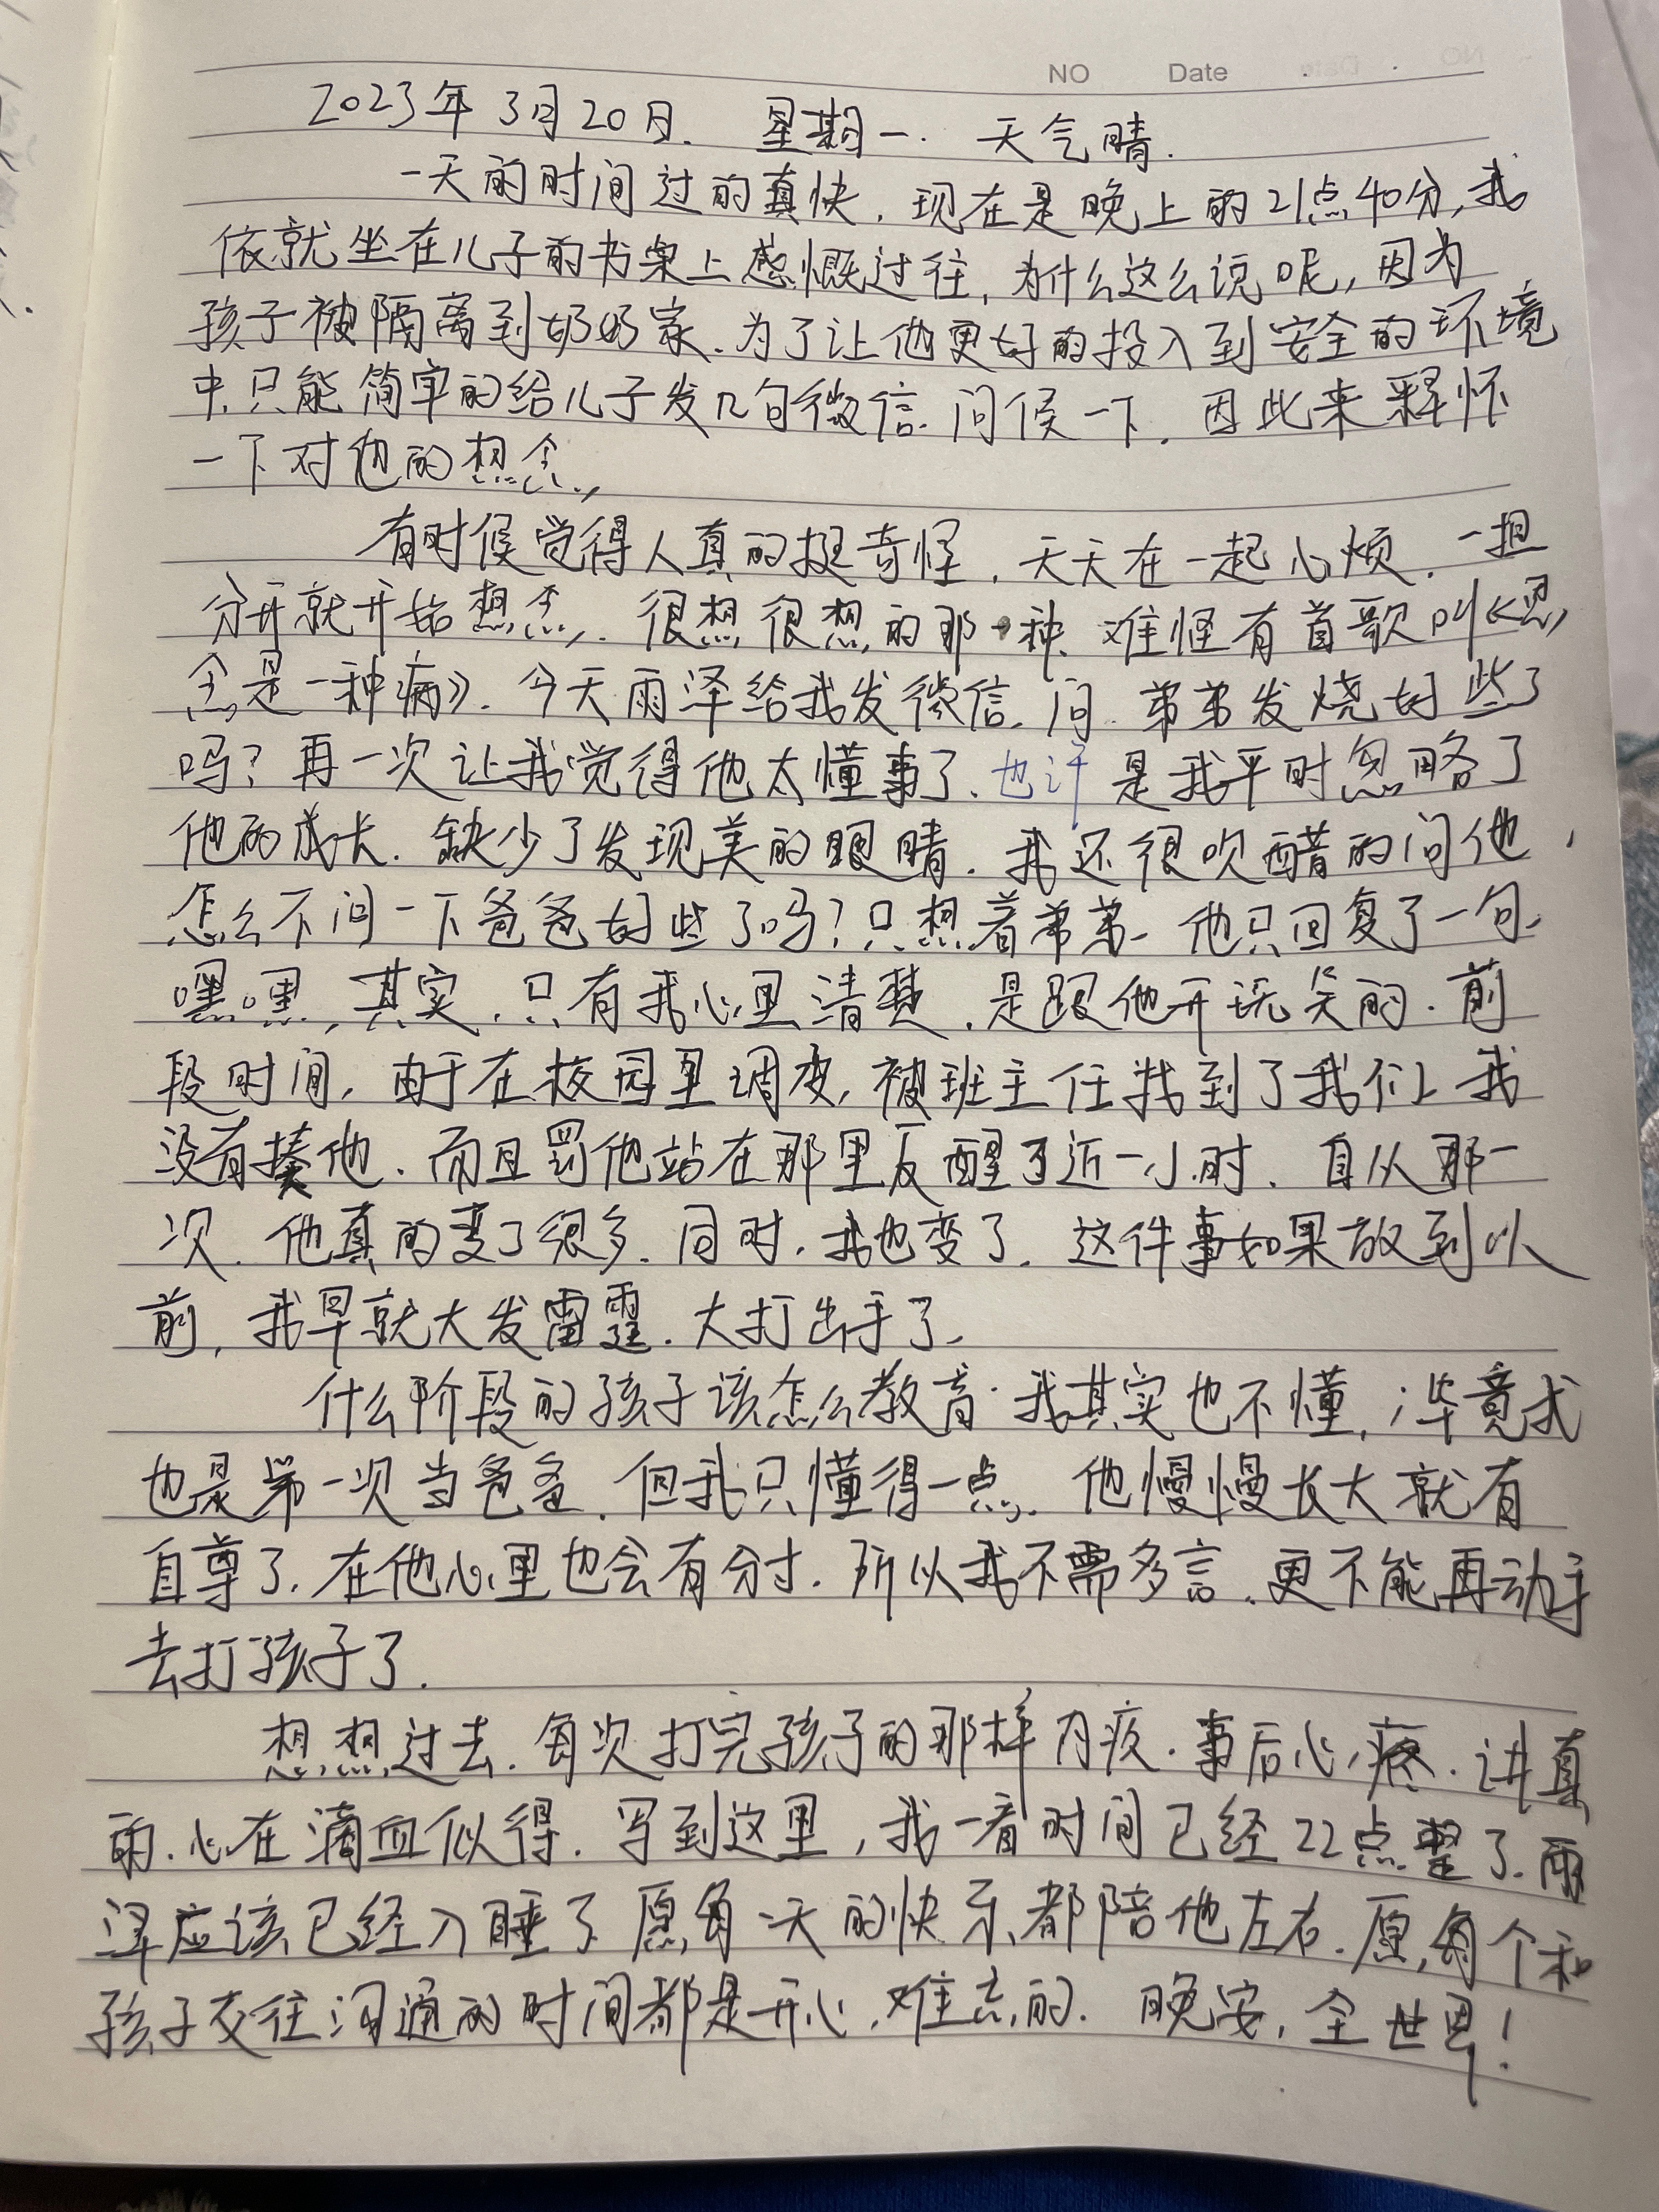 NO Date
2023年3月20日. 星期一. 天气晴.
一天的时间过的真快, 现在是晚上的21点40分, 我
依就坐在儿子的书桌上感慨过往, 为什么这么说呢, 因为
孩子被隔离到奶奶家. 为了让他更好的投入到安全的环境
中. 只能简单的给儿子发几句微信. 问候一下. 因此来释怀
一下对他的想念,
有时候觉得人真的挺奇怪, 天天在一起心烦. 一担
分开就开始想念, 很想很想的那一种. 难怪有首歌叫《思
念是一种病》. 今天雨泽给我发微信. 问. 弟弟发烧好些了
吗? 再一次让我觉得他太懂事了. 也许是我平时忽略了
他的成长. 缺少了发现美的眼睛. 我还很吹醋的问他,
怎么不问一下爸爸好些了吗? 只想着弟弟. 他只回复了一句.
嘿嘿, 其实, 只有我心里清楚, 是跟他开玩笑的. 前
段时间, 由于在校园里调皮, 被班主任找到了我们, 我
没有揍他. 而且罚他站在那里反醒了近一小时. 自从那一
次. 他真的变了很多. 同时, 我也变了. 这件事如果放到以
前, 我早就大发雷霆. 大打出手了.
什么阶段的孩子该怎么教育. 我其实也不懂, 毕竟我
也是第一次当爸爸. 但我只懂得一点. 他慢慢长大就有
自尊了. 在他心里也会有分寸. 所以我不需多言. 更不能再动手
去打孩子了.
想想过去. 每次打完孩子的那样内疚. 事后心疼. 讲真
的. 心在滴血似得. 写到这里, 我一看时间已经22点整了. 雨
泽应该已经入睡了. 愿每一天的快乐都陪他左右. 愿每个和
孩子交往沟通的时间都是开心, 难忘的. 晚安, 全世界!